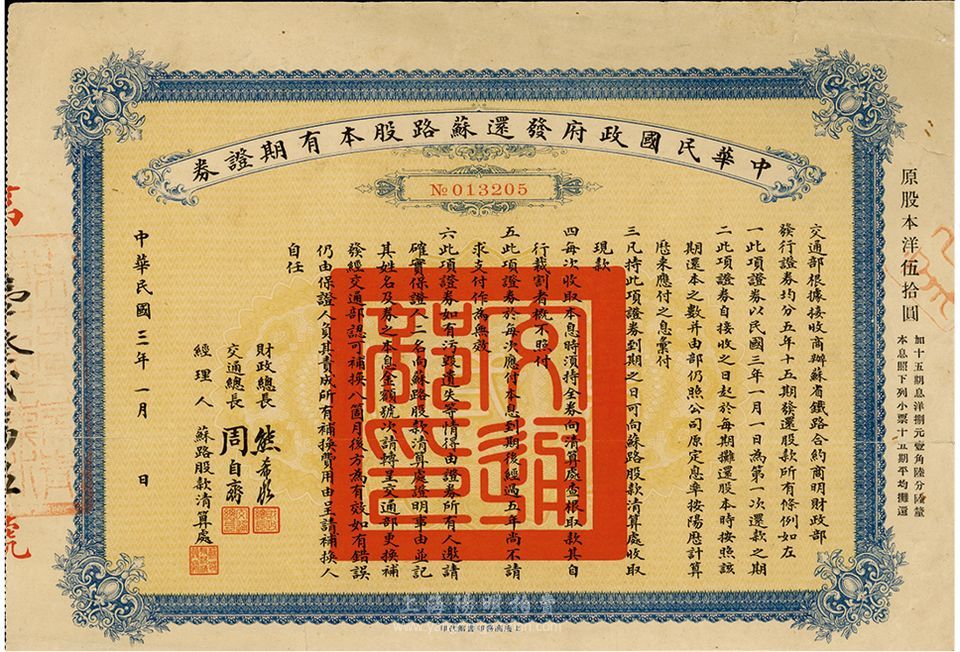 中華民國政府發還蘇路股本有期證券
№013205
原股本洋伍拾圓
加十五期息洋捌元壹角陸分陸釐
本息照下列小票十五期平均攤還
交通部根據接收商辦蘇省鐵路合約商明財政部
發行證券均分五年十五期發還股款所有條例如左
一此項證券以民國三年一月一日為第一次還款之期
二此項證券自接收之日起於每期攤還股本時按照該
期還本之數并由部仍照公司原定息率按陽曆計算
曆來應付之息彙付
三凡持此項證券到期之日可向蘇路股款清算處收取
現款
四每次收取本息時須持全券向清算處查根取款其自
行裁割者概不照付
五此項證券於每次應付本息到期後經過五年尚不請
求支付作為無效
六此項證券如有污毀遺失等情得由證券所有人邀請
確實保證人二名向蘇路股款清算處證明事由並記
其姓名及券之本息金額號次請轉呈交通部更換補
發經交通部認可補換八箇月後方為有效如有錯誤
仍由保證人負其責成所有補換費用由呈請補換人
自任
財政總長 熊希齡
交通總長 周自齊
經理人 蘇路股款清算處
中華民國三年一月 日
上海陽明拍賣
上海商務印書館代印